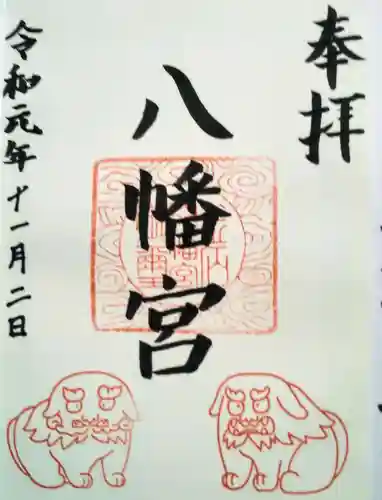 奉拝
八幡宮
令和元年十一月二日